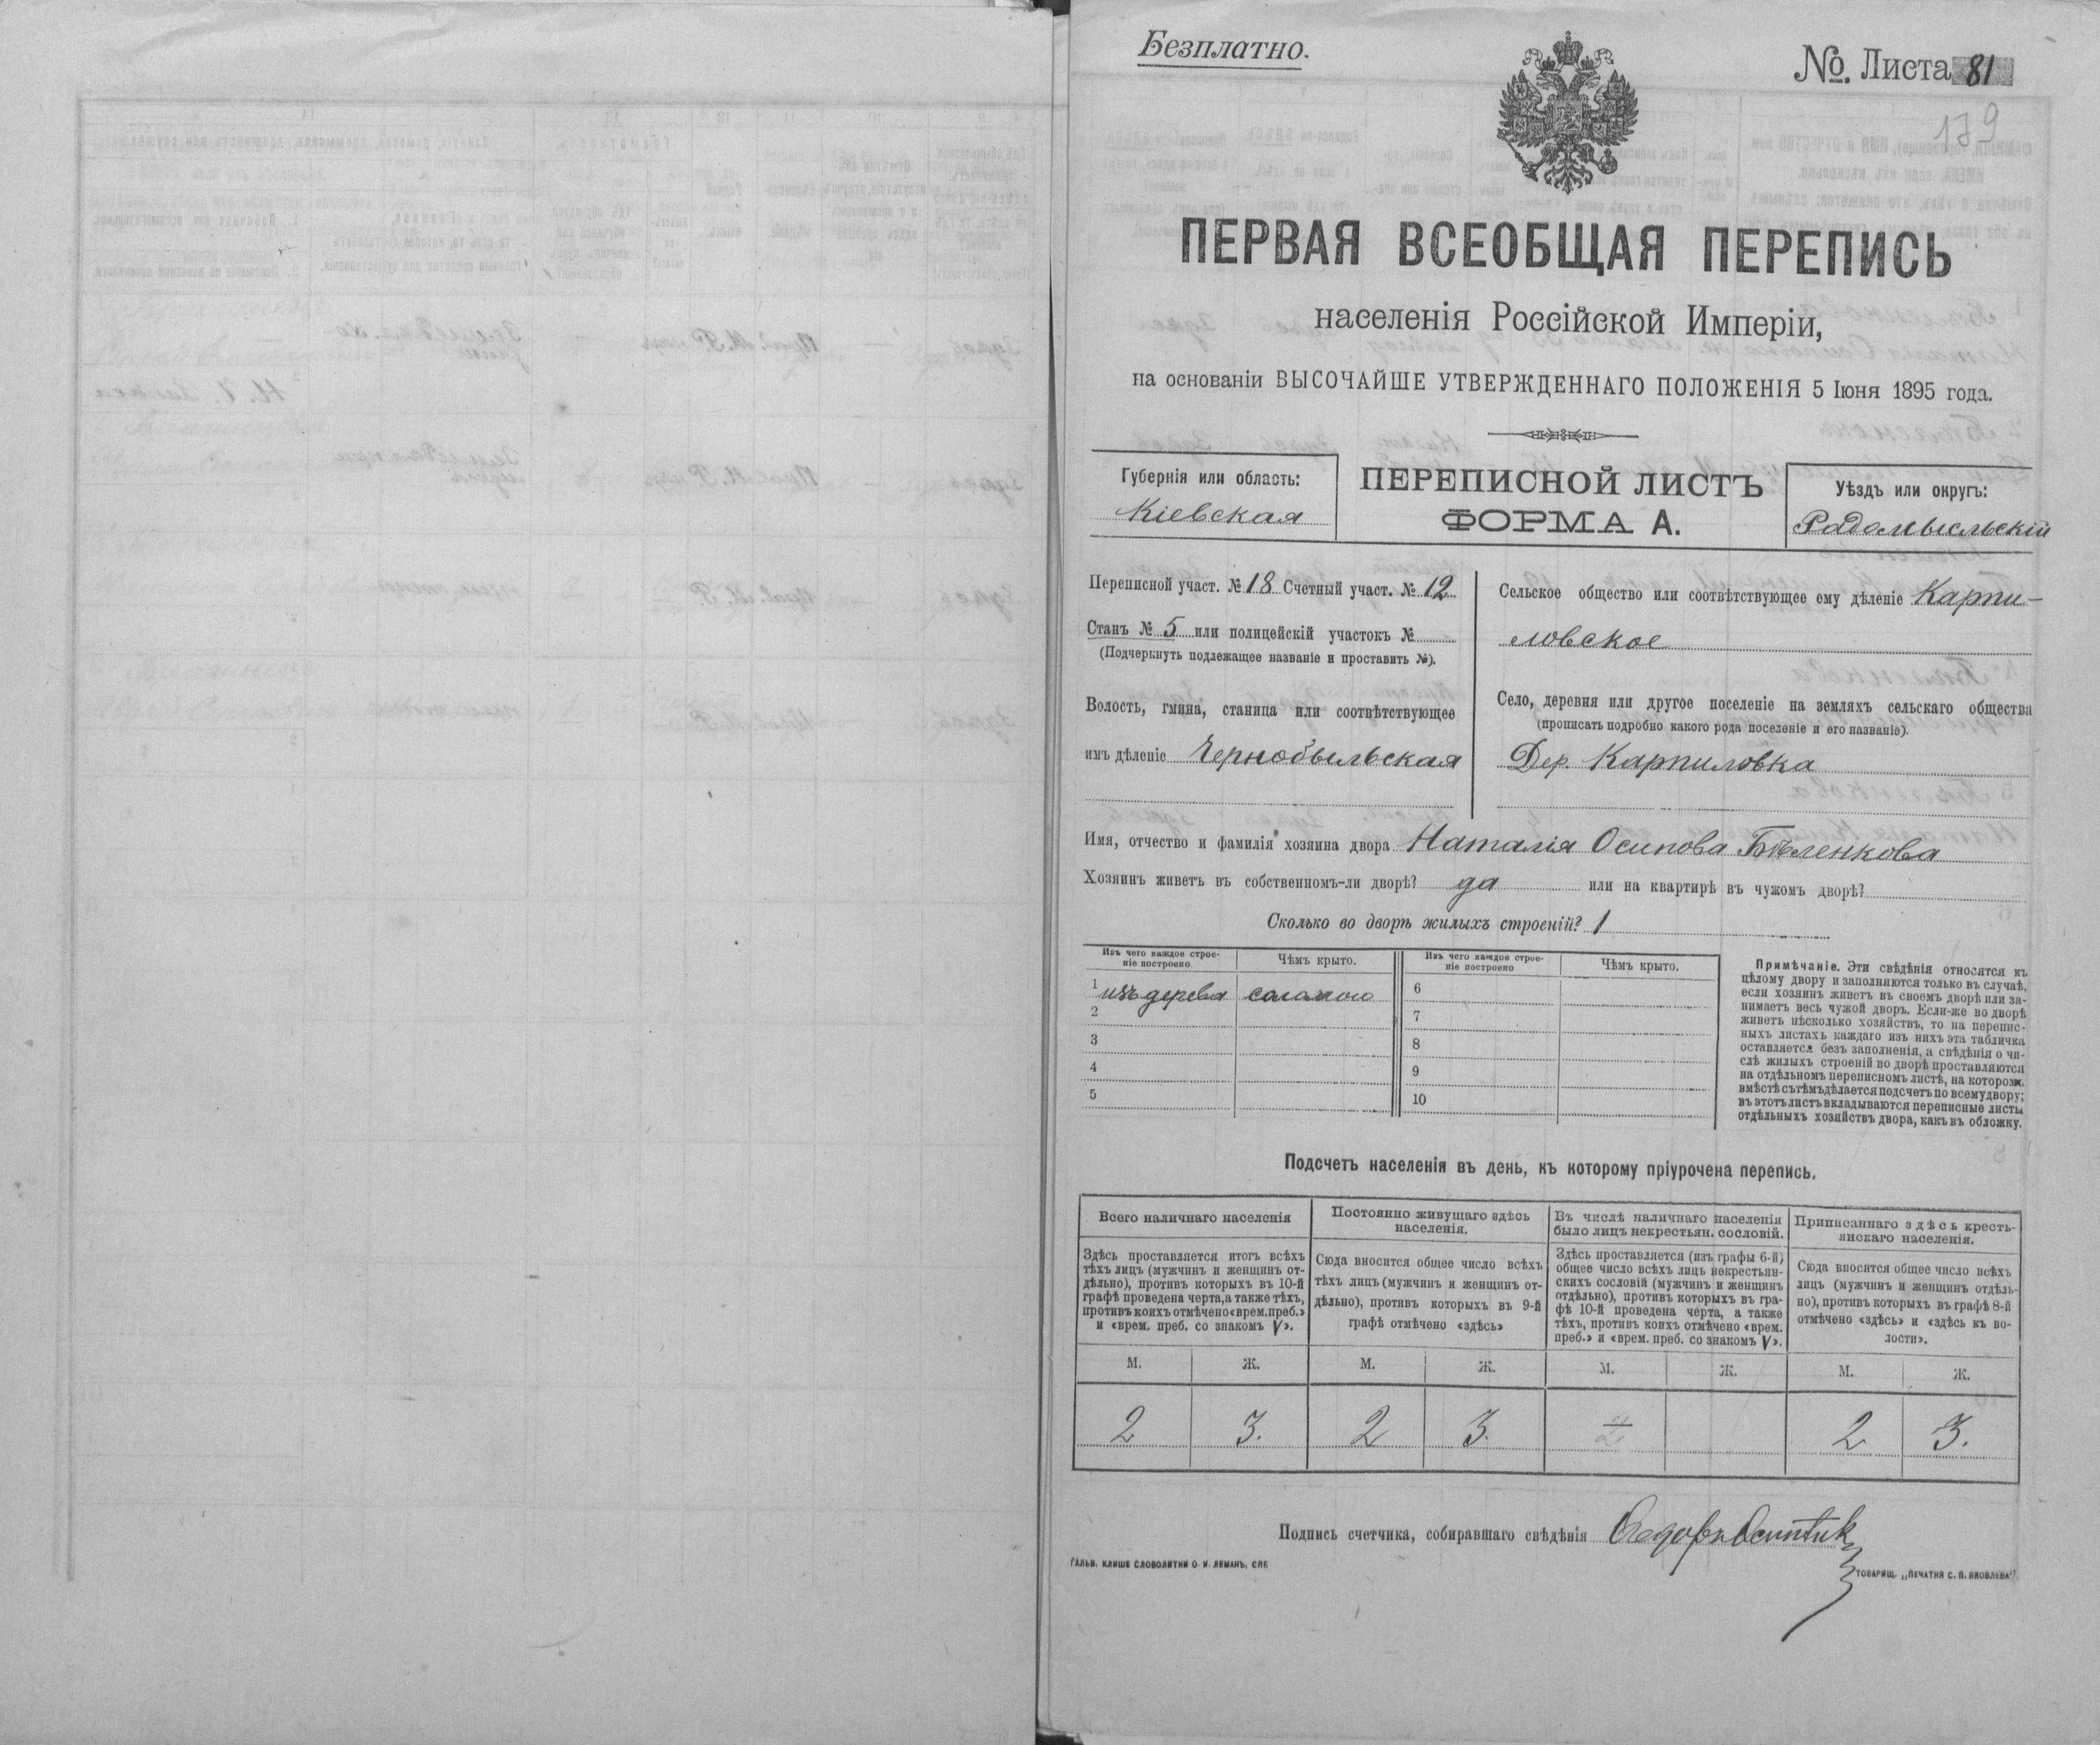 Безплатно.
№. Листа 81
179
ПЕРВАЯ ВСЕОБЩАЯ ПЕРЕПИСЬ
населенія Россійской Имперіи,
на основаніи ВЫСОЧАЙШЕ УТВЕРЖДЕННАГО ПОЛОЖЕНІЯ 5 Іюня 1895 года.
Губернія или область:
Кіевская
ПЕРЕПИСНОЙ ЛИСТЪ
ФОРМА А.
Уѣздъ или округъ:
Радомысльскій
Переписной участ. № 18 Счетный участ. № 12
Станъ № 5 или полицейскій участокъ №
(Подчеркнуть подлежащее названіе и проставить №).
Волость, гмина, станица или соотвѣтствующее
имъ дѣленіе Чернобыльская
Сельское общество или соотвѣтствующее ему дѣленіе Карпи-
ловское
Село, деревня или другое поселеніе на земляхъ сельскаго общества
(прописать подробно какого рода поселеніе и его названіе).
Дер. Карпиловка
Имя, отчество и фамилія хозяина двора Наталія Осипова Бѣленкова
Хозяинъ живетъ въ собственномъ-ли дворѣ? да или на квартирѣ въ чужомъ дворѣ?
Сколько во дворѣ жилыхъ строеній? 1
Изъ чего каждое строе-
ніе построено
Чѣмъ крыто.
Изъ чего каждое строе-
ніе построено
Чѣмъ крыто.
1 изъ дерева соломою
2
3
4
5
6
7
8
9
10
Примѣчаніе. Эти свѣдѣнія относятся къ
цѣлому двору и заполняются только въ случаѣ,
если хозяинъ живетъ въ своемъ дворѣ или за-
нимаетъ весь чужой дворъ. Если-же во дворѣ
живетъ нѣсколько хозяйствъ, то на перепис-
ныхъ листахъ каждаго изъ нихъ эта табличка
оставляется безъ заполненія, а свѣдѣнія о чи-
слѣ жилыхъ строеній во дворѣ проставляются
на отдѣльномъ переписномъ листѣ, на которомъ
вмѣстѣ съ тѣмъ дѣлается подсчетъ по всему двору;
въ этотъ листъ вкладываются переписные листы
отдѣльныхъ хозяйствъ двора, какъ въ обложку.
Подсчетъ населенія въ день, къ которому пріурочена перепись.
Всего наличнаго населенія
Здѣсь проставляется итогъ всѣхъ
тѣхъ лицъ (мужчинъ и женщинъ от-
дѣльно), противъ которыхъ въ 10-й
графѣ проведена черта, а также тѣхъ,
противъ коихъ отмѣчено «врем. преб.»
и «врем. преб. со знакомъ V».
Постоянно живущаго здѣсь
населенія.
Сюда вносится общее число всѣхъ
тѣхъ лицъ (мужчинъ и женщинъ от-
дѣльно), противъ которыхъ въ 9-й
графѣ отмѣчено «здѣсь»
Въ числѣ наличнаго населенія
было лицъ некрестьян. сословій.
Здѣсь проставляется (изъ графы 6-й)
общее число всѣхъ лицъ некрестьян-
скихъ сословій (мужчинъ и женщинъ
отдѣльно), противъ которыхъ въ гра-
фѣ 10-й проведена черта, а также
тѣхъ, противъ коихъ отмѣчено «врем.
преб.» и «врем. преб. со знакомъ V».
Приписаннаго здѣсь кресть-
янскаго населенія.
Сюда вносится общее число всѣхъ
лицъ (мужчинъ и женщинъ отдѣль-
но), противъ которыхъ въ графѣ 8-й
отмѣчено «здѣсь» и «здѣсь къ во-
лости».
М. Ж. М. Ж. М. Ж. М. Ж.
2 3. 2 3. 2 3.
Подпись счетчика, собиравшаго свѣдѣнія
ГАЛЬВ. КЛИШЕ СЛОВОЛИТНИ О. И. ЛЕМАНЪ, СПБ
ТОВАРИЩ. „ПЕЧАТНЯ С. П. ЯКОВЛЕВА"